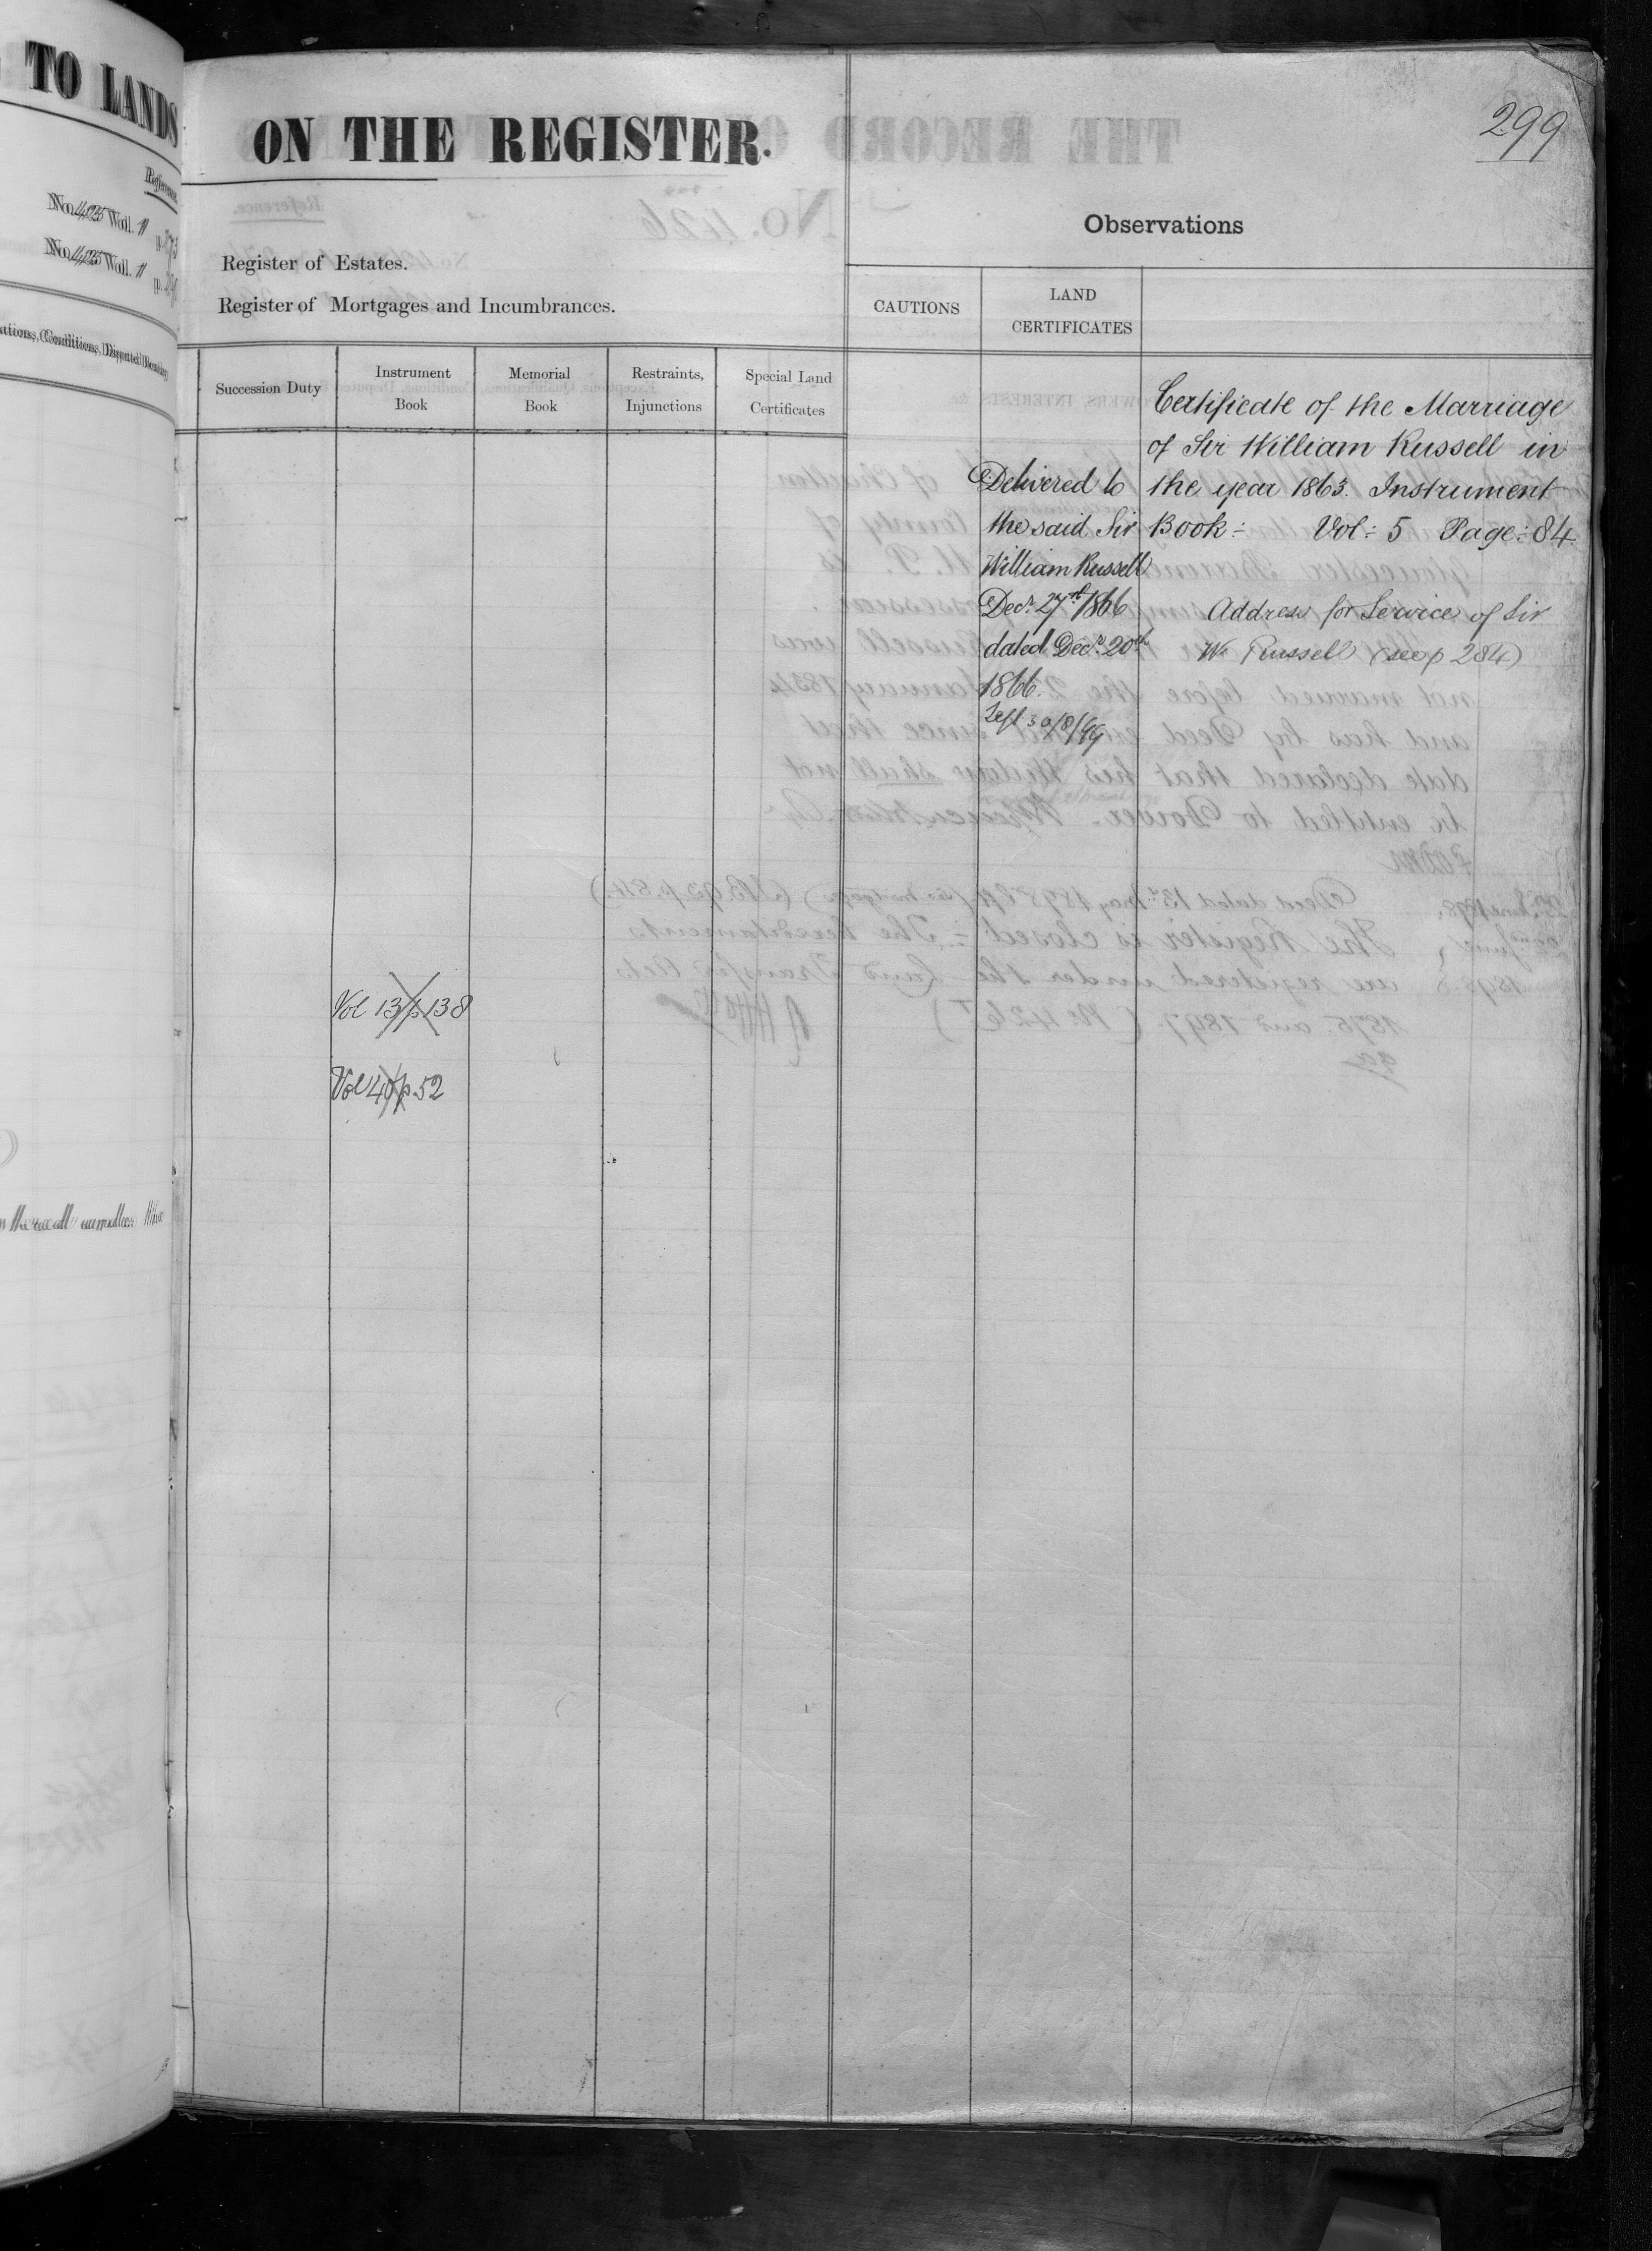 TO LANDS
Reference.
No. 425 Vol. 11 p. 273
No. 425 Vol. 11
299
ON THE REGISTER.
Observations
Register of Estates.
Register of Mortgages and Incumbrances.
CAUTIONS
LAND
CERTIFICATES
Succession Duty
Instrument
Book
Memorial
Book
Restraints,
Injunctions
Special Land
Certificates
Delivered to
the said Sir
William Russell
Decr. 27th 1866
dated Decr. 20th
1866.
30/8/99
Certificate of the Marriage
of Sir William Russell in
the year 1863. Instrument
Book:- Vol: 5 Page: 84.
Address for Service of Sir
W. Russell (see p 284)
Vol 13 p 138
Vol 40 p 52